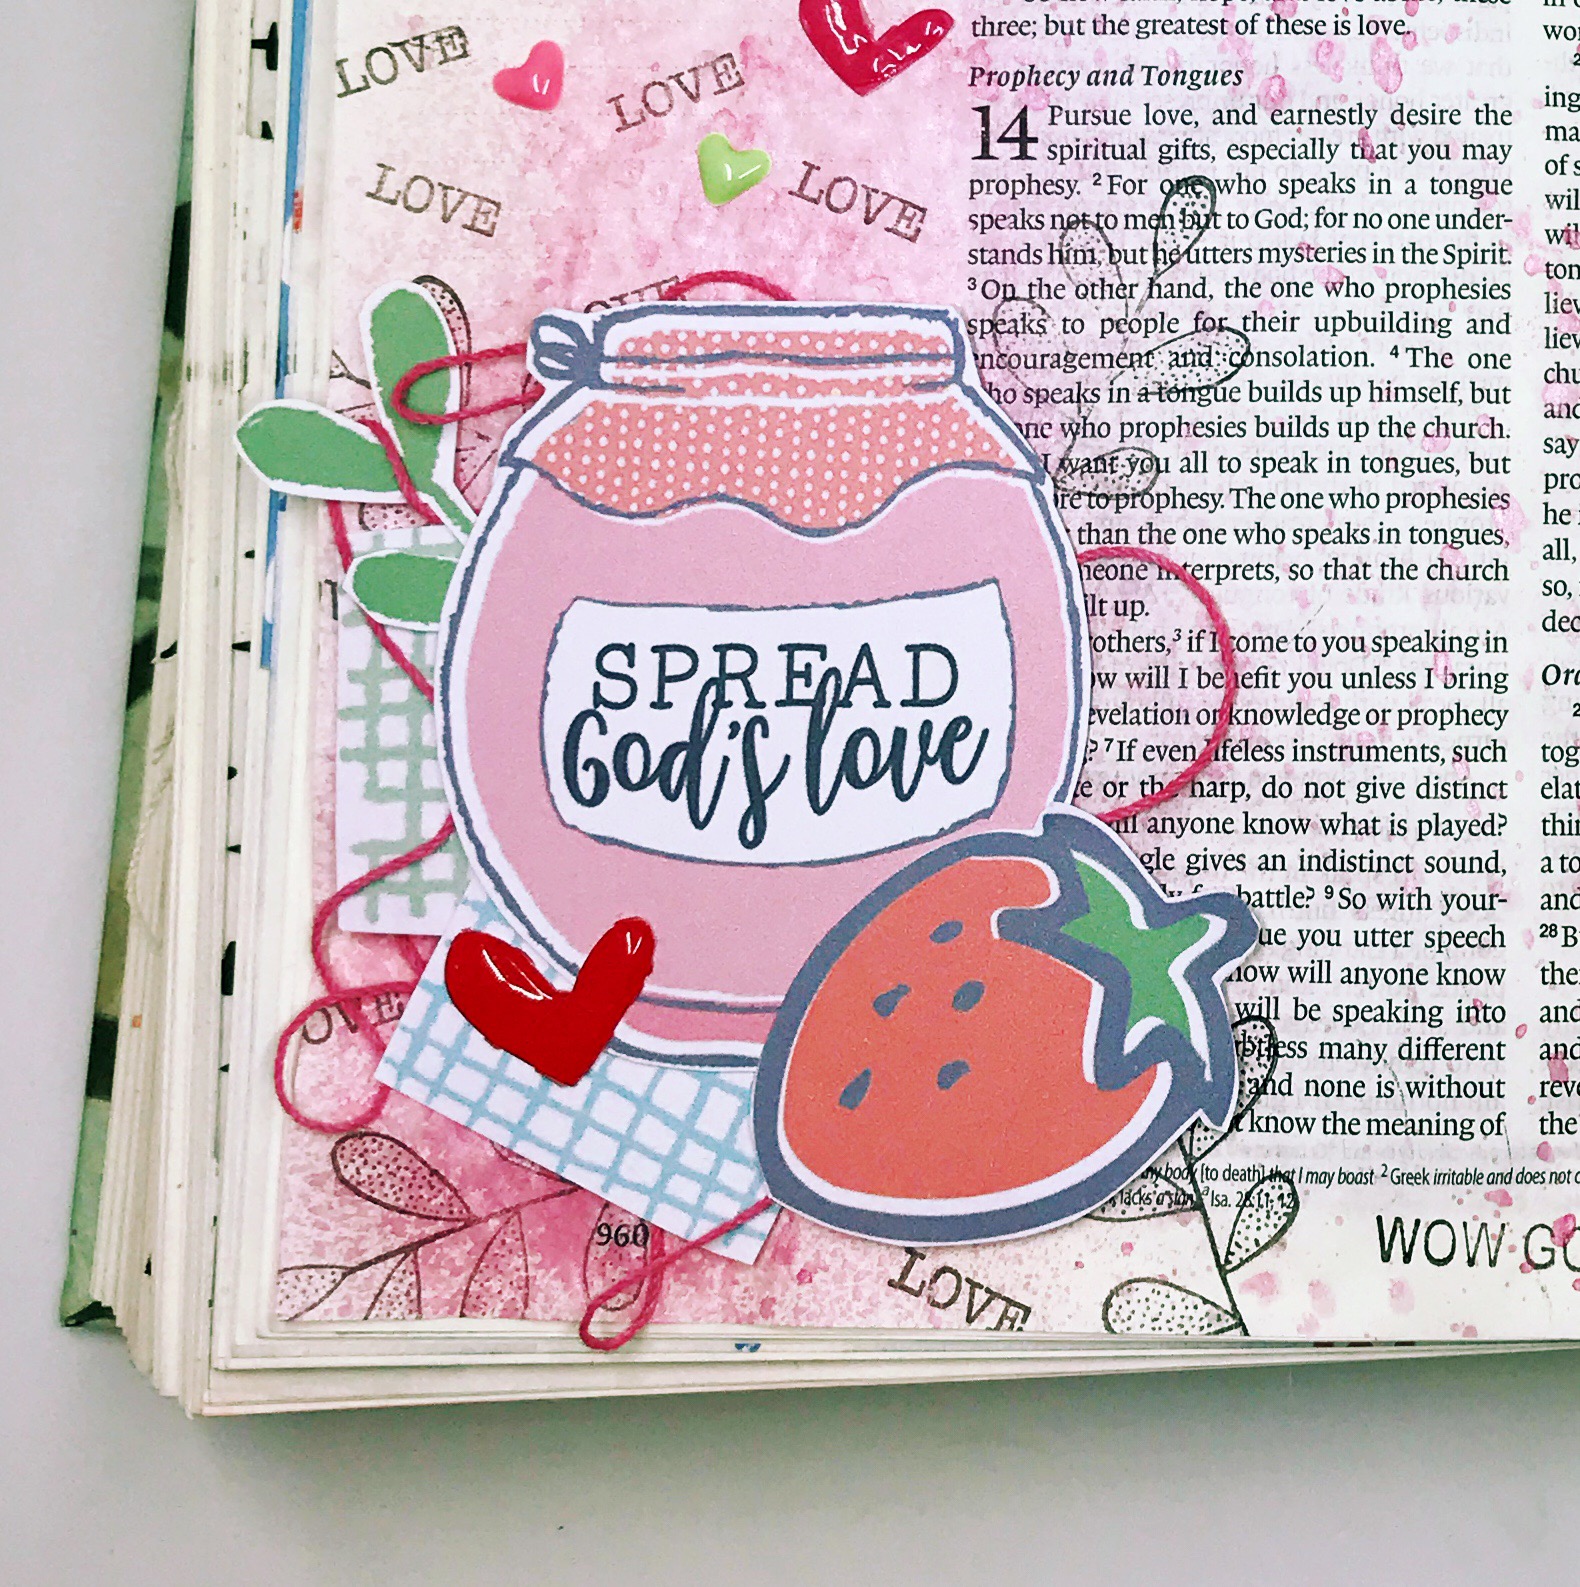 LOVE
LOVE
LOVE
LOVE
SPREAD
God's love
OVE
960
LOVE
three; but the greatest of these is love.
Prophecy and Tongues
14 Pursue love, and earnestly desire the
spiritual gifts, especially that you may
prophesy. 2 For one who speaks in a tongue
speaks not to men but to God; for no one under-
stands him, but he utters mysteries in the Spirit.
3 On the other hand, the one who prophesies
speaks to people for their upbuilding and
encouragement and consolation. 4 The one
who speaks in a tongue builds up himself, but
one who prophesies builds up the church.
I want you all to speak in tongues, but
to prophesy. The one who prophesies
than the one who speaks in tongues,
interprets, so that the church
up.
others,3 if I come to you speaking in
will I benefit you unless I bring
revelation or knowledge or prophecy
? 7 If even lifeless instruments, such
or the harp, do not give distinct
anyone know what is played?
gives an indistinct sound,
battle? 9 So with your-
you utter speech
how will anyone know
will be speaking into
many different
and none is without
know the meaning of
body [to death] that I may boast 2 Greek irritable and does not
lacks a sign a Isa. 28:11, 12
28 B
WOW GO